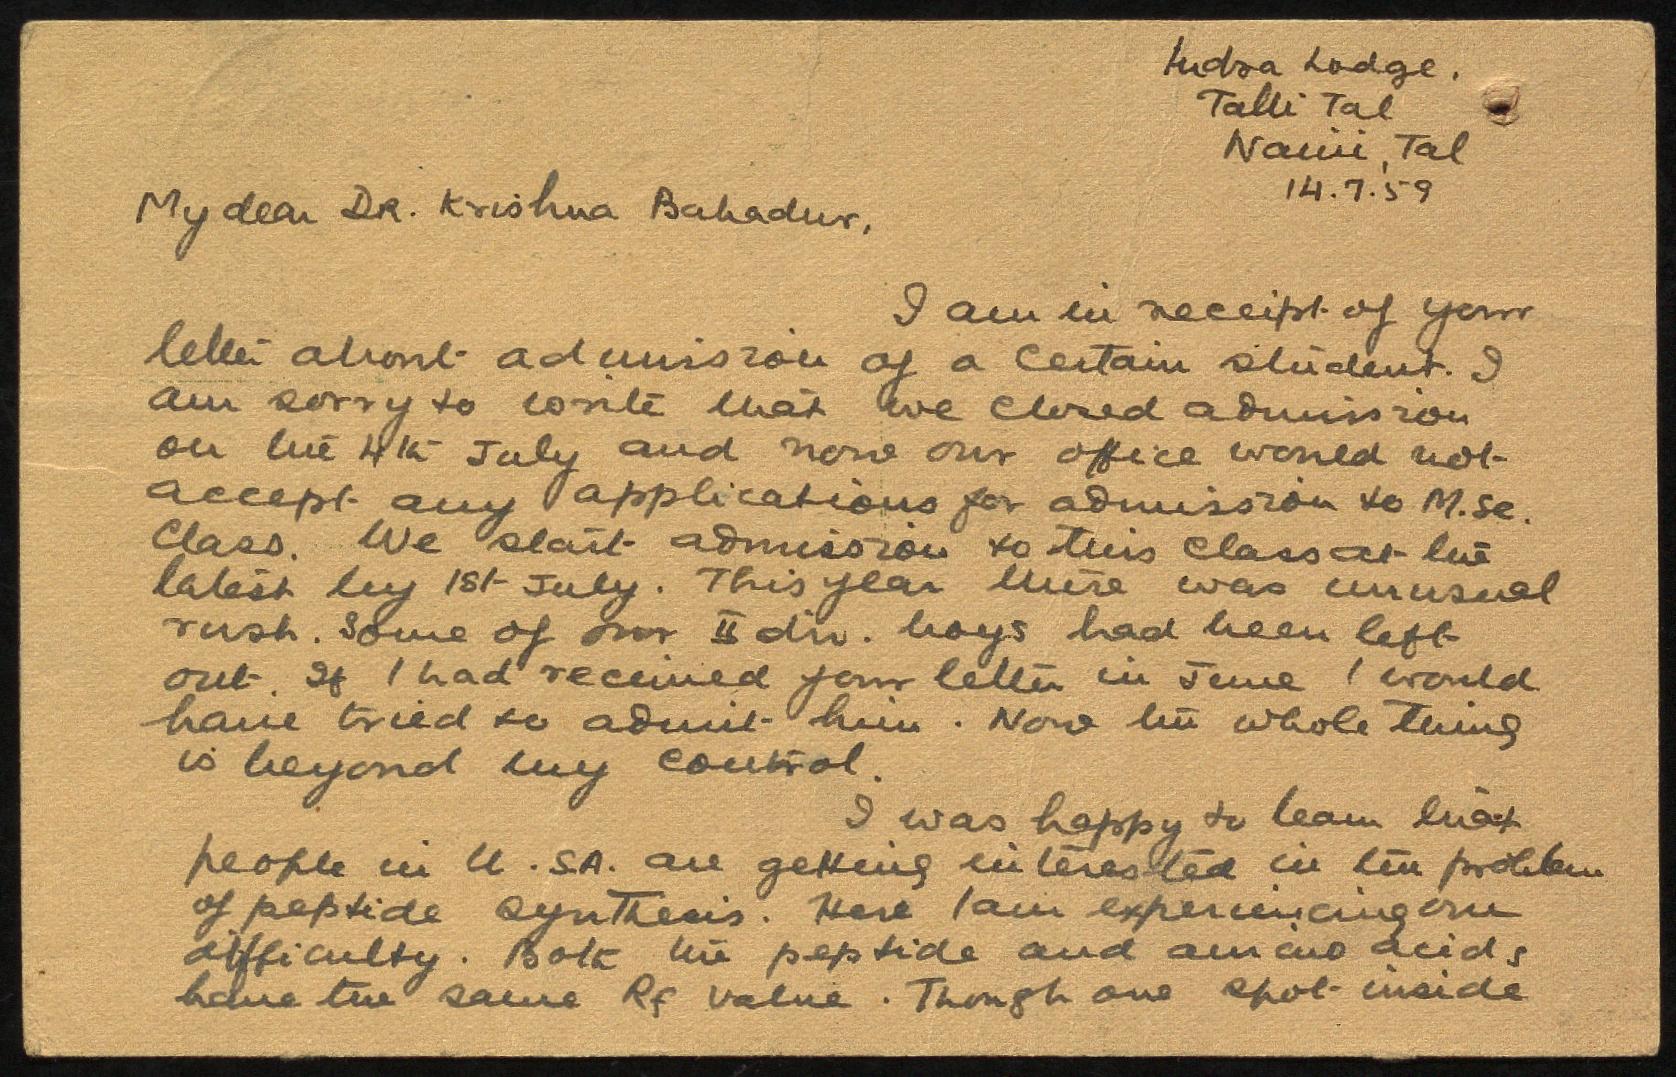 Indra Lodge.
Talli Tal
Naini, Tal
14.7.59
My dear DR. Krishna Bahadur,
I am in receipt of your
letter about admission of a certain student. I
am sorry to write that we closed admission
on the 4th July and now our office would not
accept any applications for admission to M.Sc.
Class. We start admission to this class at the
latest by 1st July. This year there was unusual
rush. Some of our II div. boys had been left
out. If I had received your letter in June I would
have tried to admit him. Now the whole thing
is beyond my control.
I was happy to learn that
people in U.S.A. are getting interested in the problem
of peptide synthesis. Here I am experiencing one
difficulty. Both the peptide and amino acids
have the same Rf value. Though one spot inside